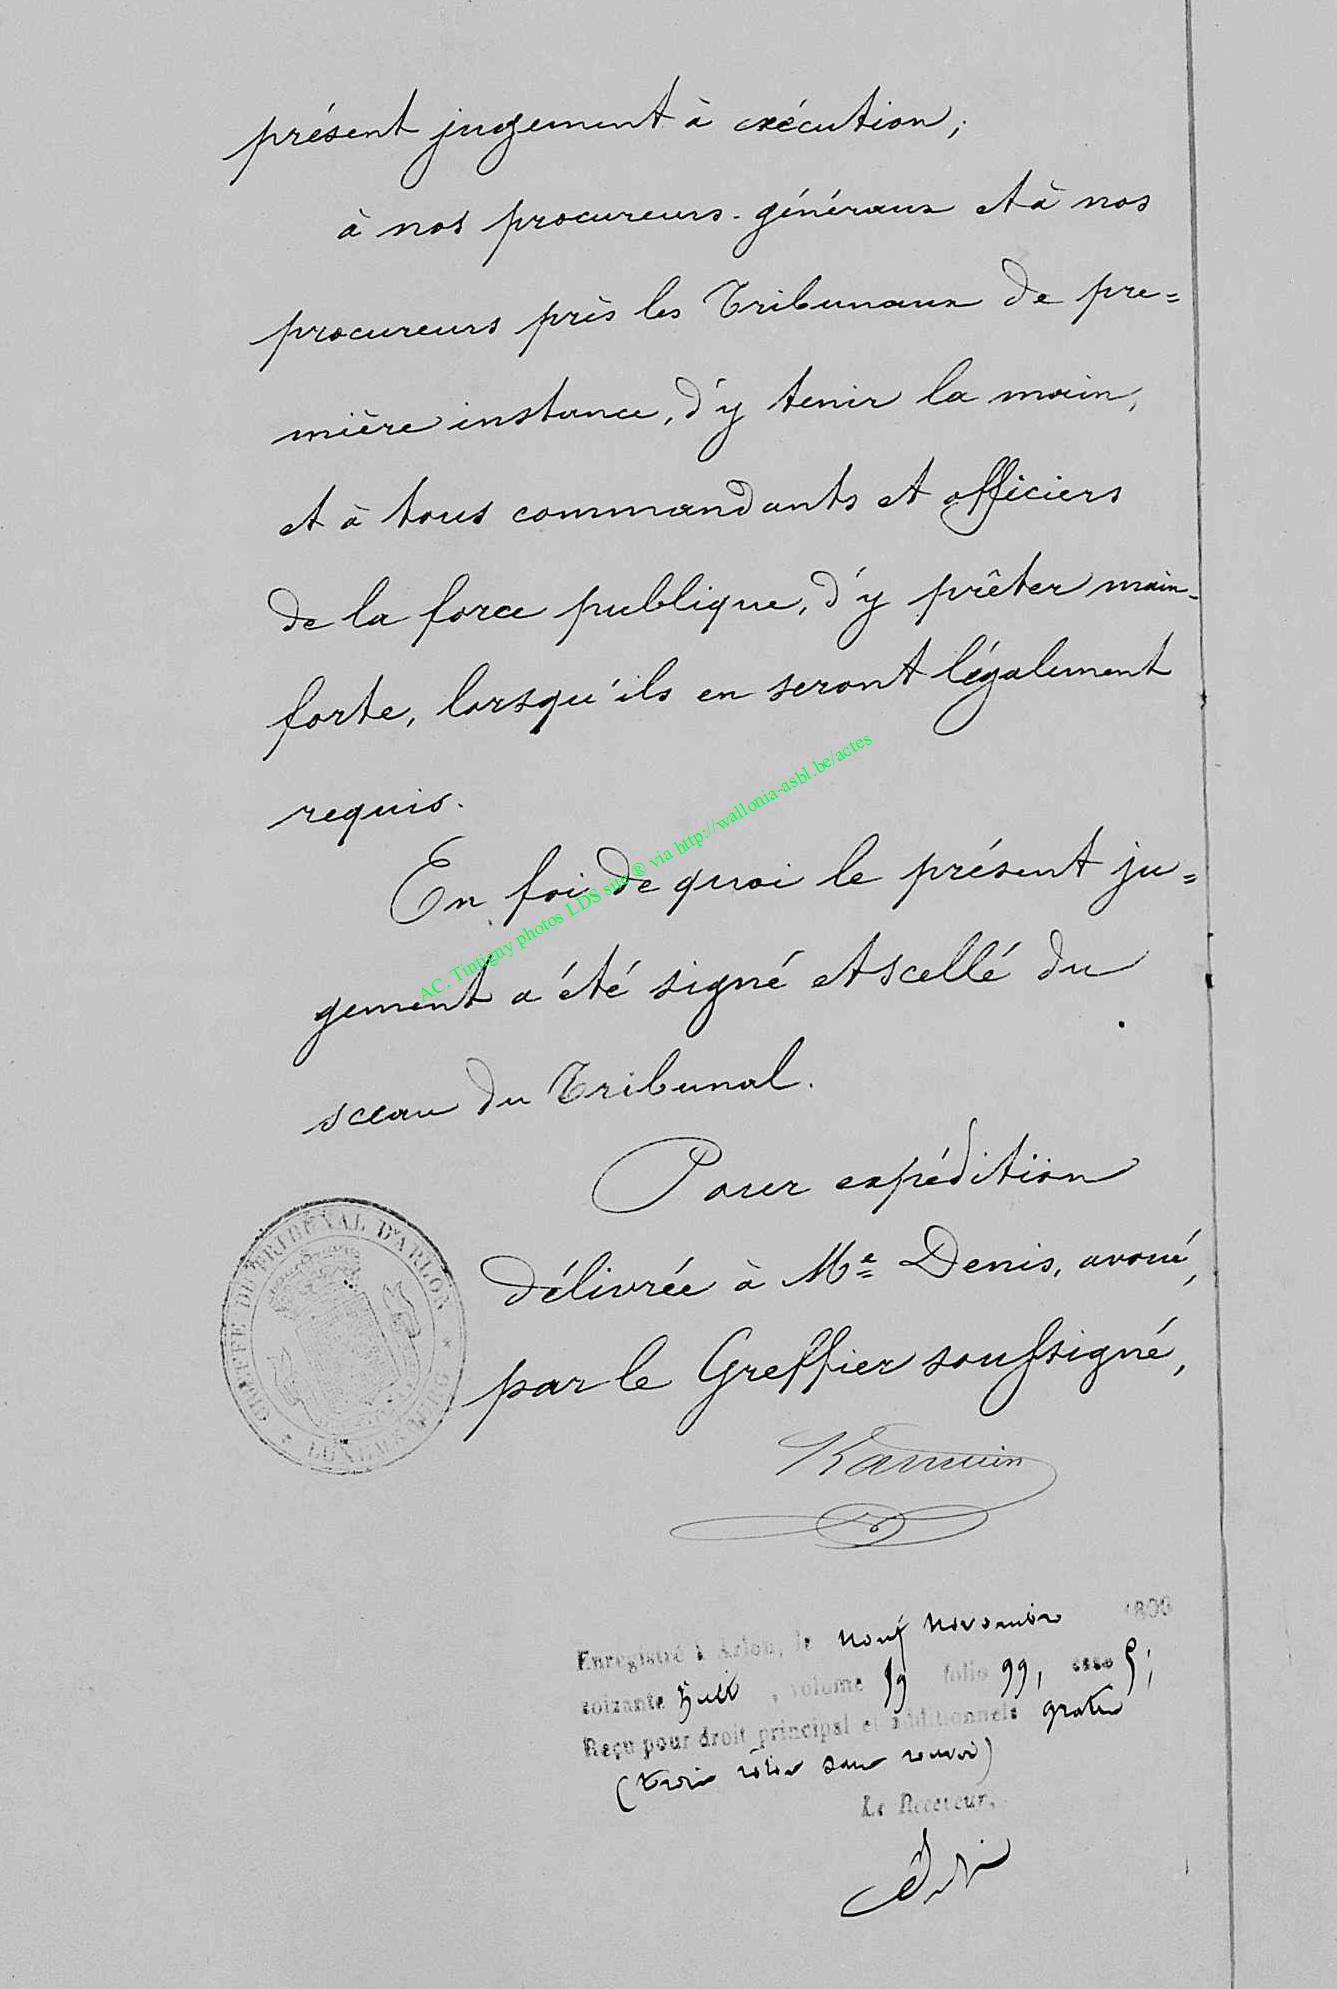 présent jugement à exécution,
à nos procureurs-généraux et à nos
procureurs près les Tribunaux de pre=
mière instance, d'y tenir la main,
et à tous commandants et officiers
de la force publique, d'y prêter main-
forte, lorsqu'ils en seront légalement
requis.
En foi de quoi le présent ju=
gement a été signé et scellé du
sceau du Tribunal.
AC. Tintigny photos LDS site® via http://wallonia-asbl.be/actes
Pour expédition
délivrée à Me Denis, avoué,
par le Greffier soussigné,
GREFFE DU TRIBUNAL D'ARLON
* LUXEMBOURG *
Enregistré à Arlon, le neuf Novembre 1800
soixante huit, volume 59 folio 99, case 5;
Reçu pour droit principal et additionnels gratis
(trois rôles sans renvoi)
Le Receveur,